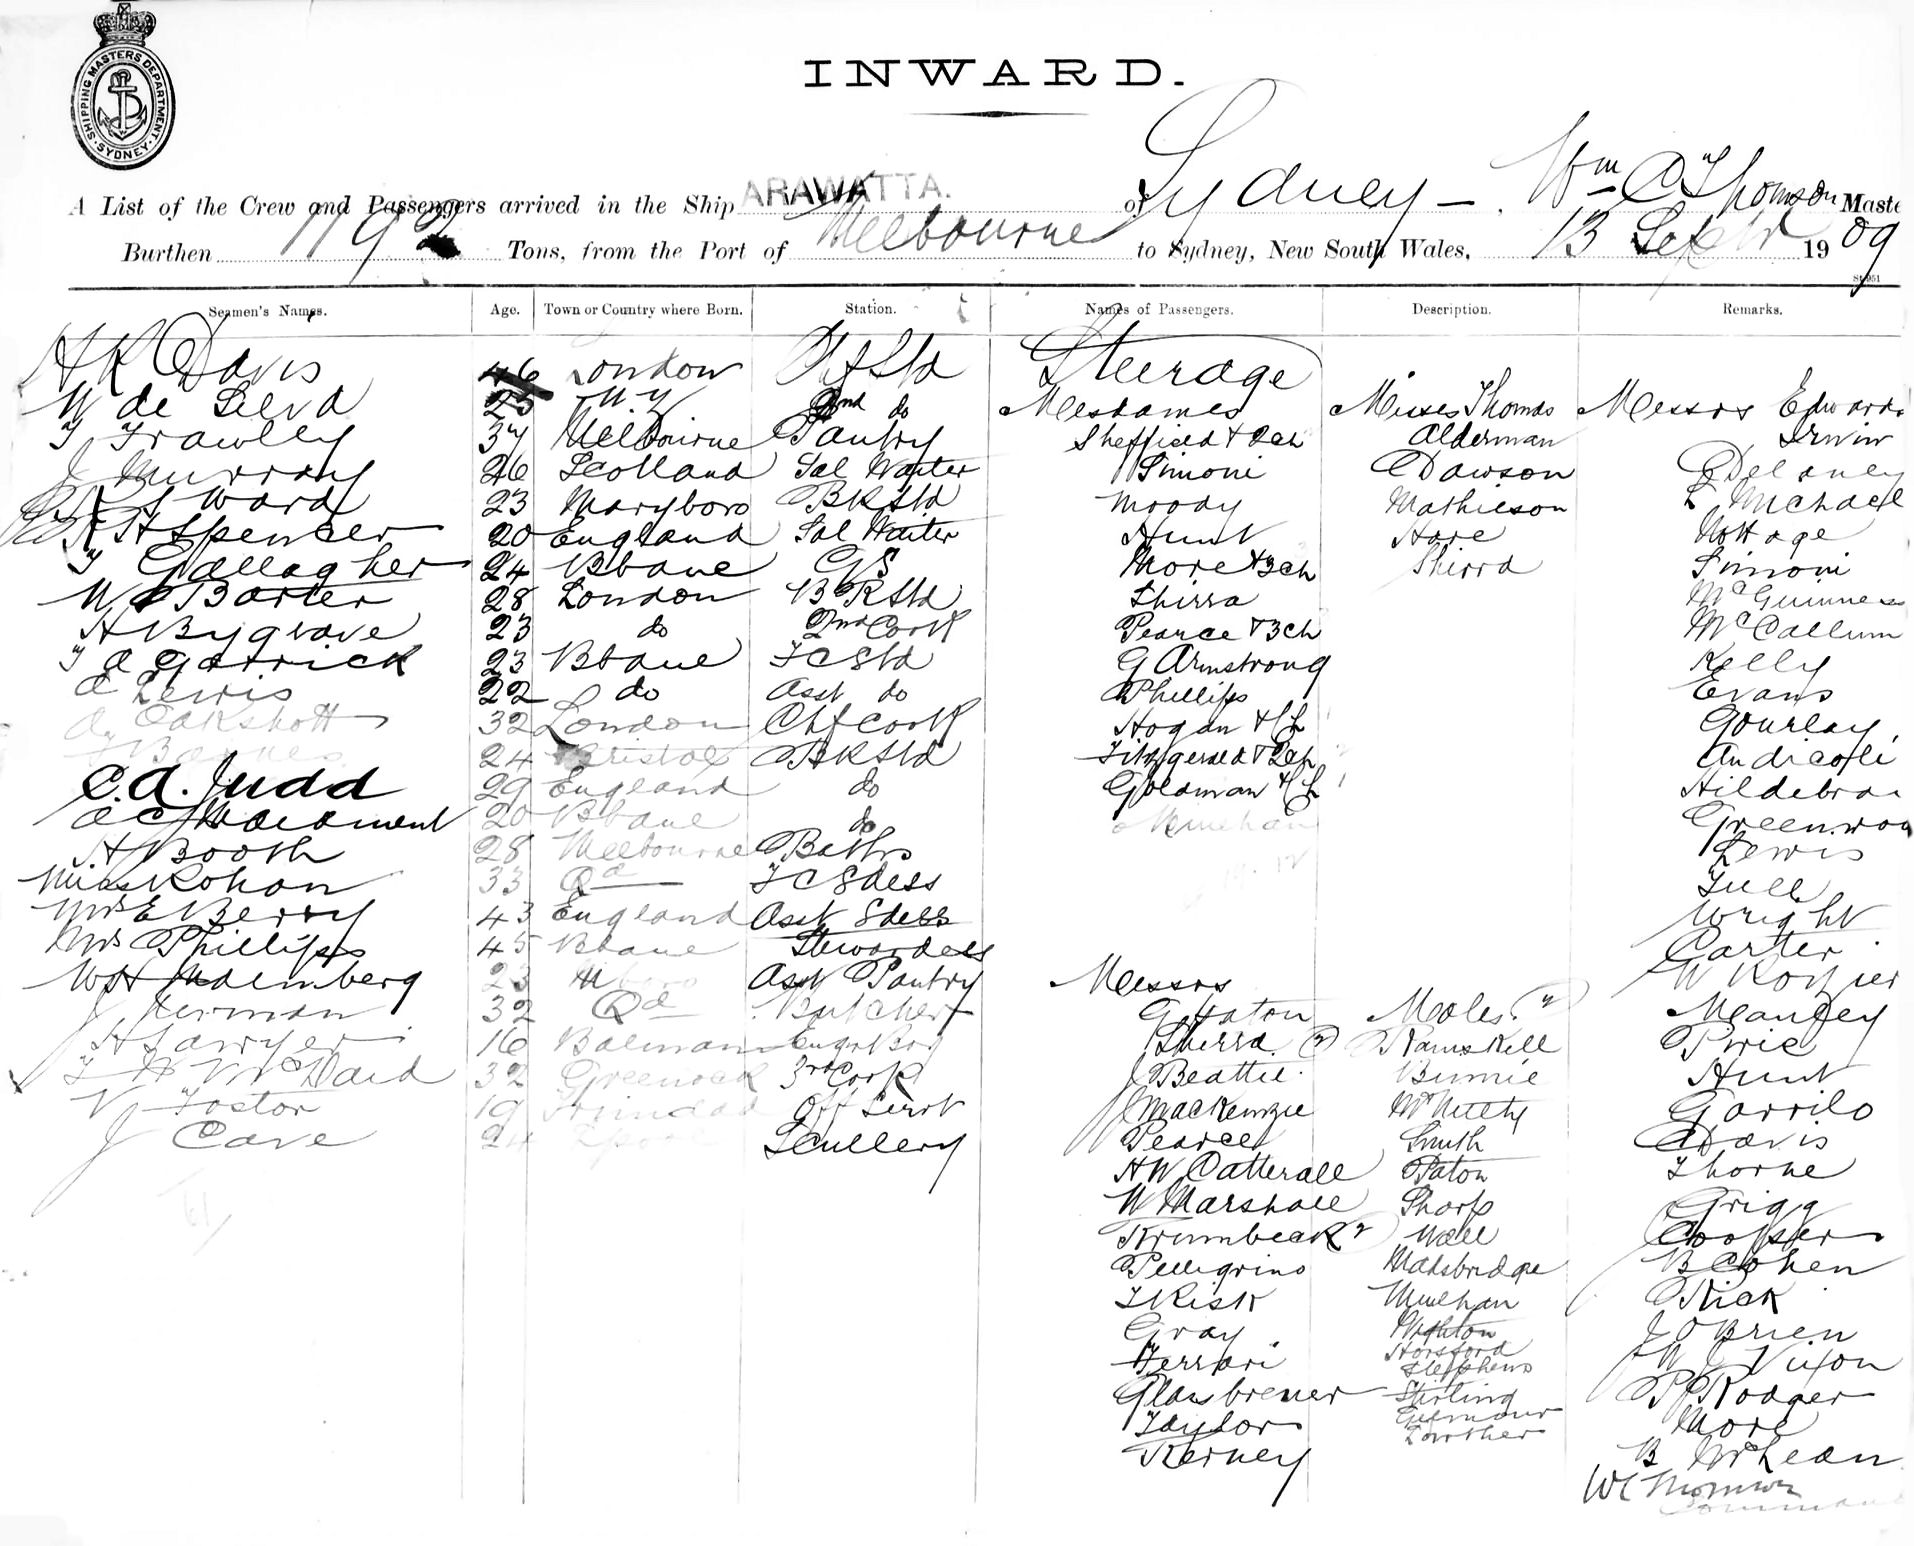 SHIPPING MASTERS DEPARTMENT
SYDNEY
INWARD.
A List of the Crew and Passengers arrived in the Ship ARAWATTA. of Sydney - Wm C Thomson Maste
Burthen 1192 Tons, from the Port of Melbourne to Sydney, New South Wales, 13 Septr 1909
Seamen's Names. Age. Town or Country where Born. Station. Names of Passengers. Description. Remarks.
H R Davis 46 London
W de Silva 25 N.Z 2nd do
T Frawley 37 Melbourne Pantry
J Murray 26 Scotland Sal Waiter
Ward 23 Maryboro BK Std
H Spencer 20 England Sal Waiter
T Gallagher 24 Bbane GS
W Barter 28 London BK Std
H Bygrave 23 do 2nd Cook
Garrick 23 Bbane
E Lewis 22 do Asst do
Oakshott 32 London Chf Cook
Barnes 24 Bristol BK Std
C.A. Judd 29 England do
20 Bbane do
H Booth 28 Melbourne Baths
Miss Kohan 33 Qd
Mrs E Berry 43 England Asst Sdess
Mrs Phillips 45 Bbane Stewardess
23 Mboro Asst Pantry
J Herman 32 Qd Butcher
H Sawyer 16 Balmain
McDaid 32 Greenock 3rd Cook
V Foster 19 Trinidad Off Servt
J Cave 24 Scullery
61
Steerage
Mesdames
Sheffield + 2ch
Simoni
Moody
Hunt
More + 3ch
Shirra
Pearce + 3ch
G Armstrong
Phillips
Hogan
Fitzgerald + 2ch
Goldman
Meehan
Misses Thomas
Alderman
Dawson
Mathieson
Hore
Shirra
Messrs
G Paton
Shirra
J Beattie
J Mackenzie
Pearce
H W Catterall
W Marshall
Krumbeck 2
Pellegrino
J Kisk
Gray
Ferrari
Taylor
Kerney
Moles
Ramskill
Binnie
Smith
Paton
Sharp
Wall
Meehan
Wighton
Horsford
Stephens
Stirling
Gilmour
Lowther
Messrs Edwards
Irwin
Delaney
Michael
Nottage
Simoni
McGuinness
McCallum
Kelly
Evans
Gourlay
Greenwoo
Lewis
Tull
Wright
Carter
Meaney
Hunt
Garrilo
Davis
Thorne
Grigg
Cooper
B Cohen
Rick
J O'Brien
W J Nixon
Rodger
More
B McLean
W C Thomson